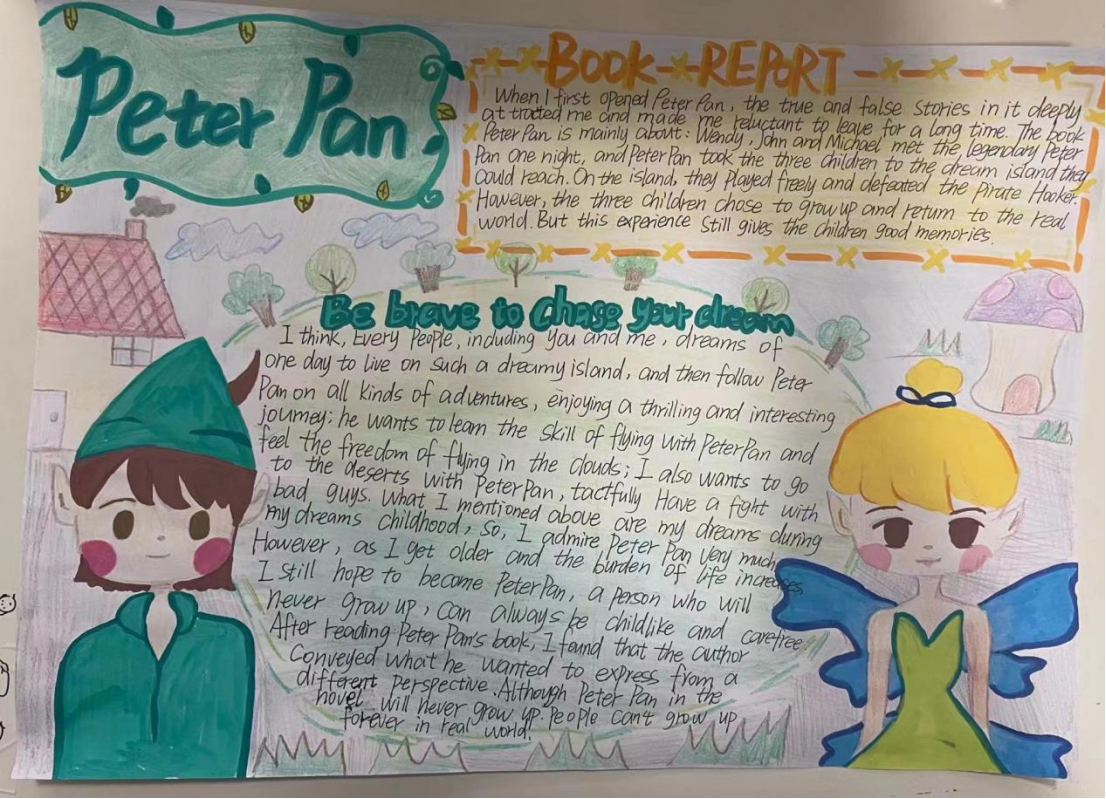 Peter Pan.
Book REPORT
When I first opened Peter Pan, the true and false stories in it deeply
attratted me and made me reluctant to leave for a long time. The book
Peter Pan is mainly about: Wendy, John and Michael met the legendary Peter
Pan One night, and Peter Pan took the three children to the dream island they
could reach. On the island, they played freely and defeated the Pirate Hooker.
However, the three children chose to grow up and return to the real
world. But this experience still gives the children good memories.
Be brave to Chase your dream
I think, Every People, including you and me, dreams of
one day to live on such a dreamy island, and then follow Peter
Pan on all kinds of adventures, enjoying a thrilling and interesting
journey; he wants to learn the skill of flying with Peter Pan and
feel the freedom of flying in the clouds; I also wants to go
to the deserts with Peter Pan, tactfully Have a fight with
bad, guys. What I mentioned above are my dreams during
my dreams childhood, so, I admire Peter Pan very much
However, as I get older and the burden of life increases
I still hope to become Peter Pan, a person who will
never grow up, can always be childlike and carefree
After reading Peter Pan's book, I found that the author
Conveyed what he wanted to express from a
different perspective. Although Peter Pan in the
novel will never grow up. People can't grow up
forever in real world!